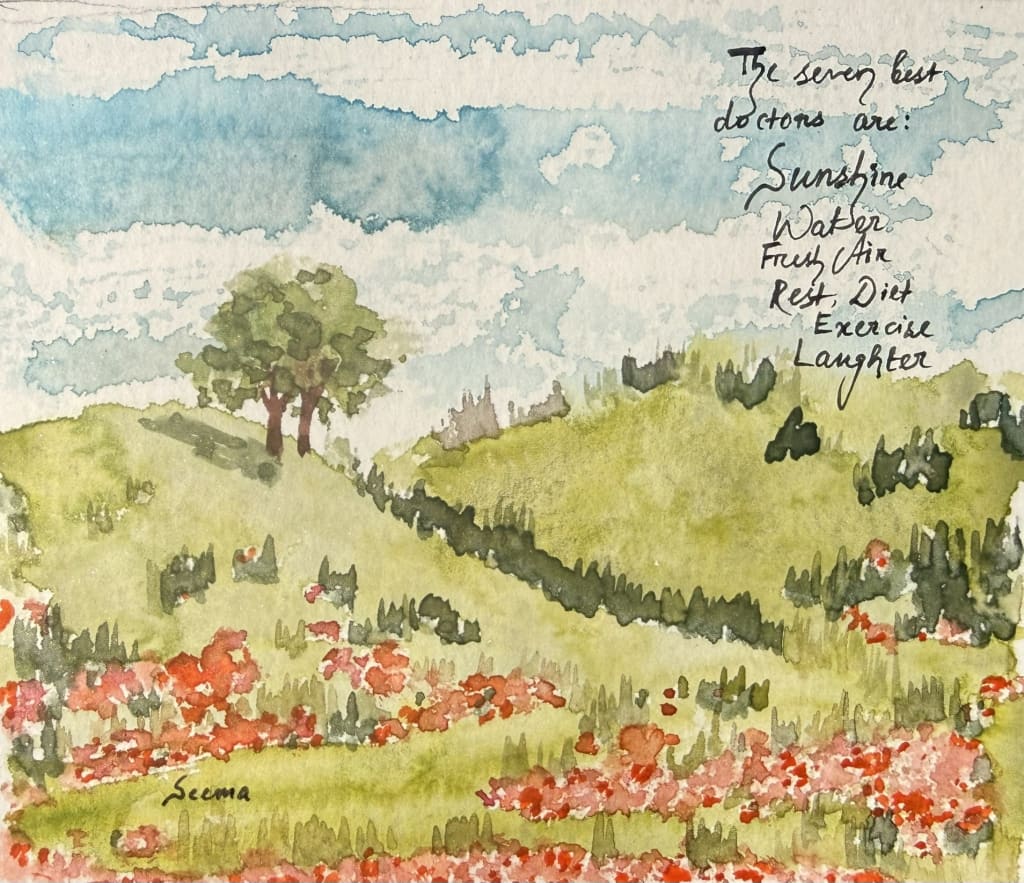 The seven best
doctors are:
Sunshine
Water
Fresh Air
Rest, Diet
Exercise
Laughter
Seema